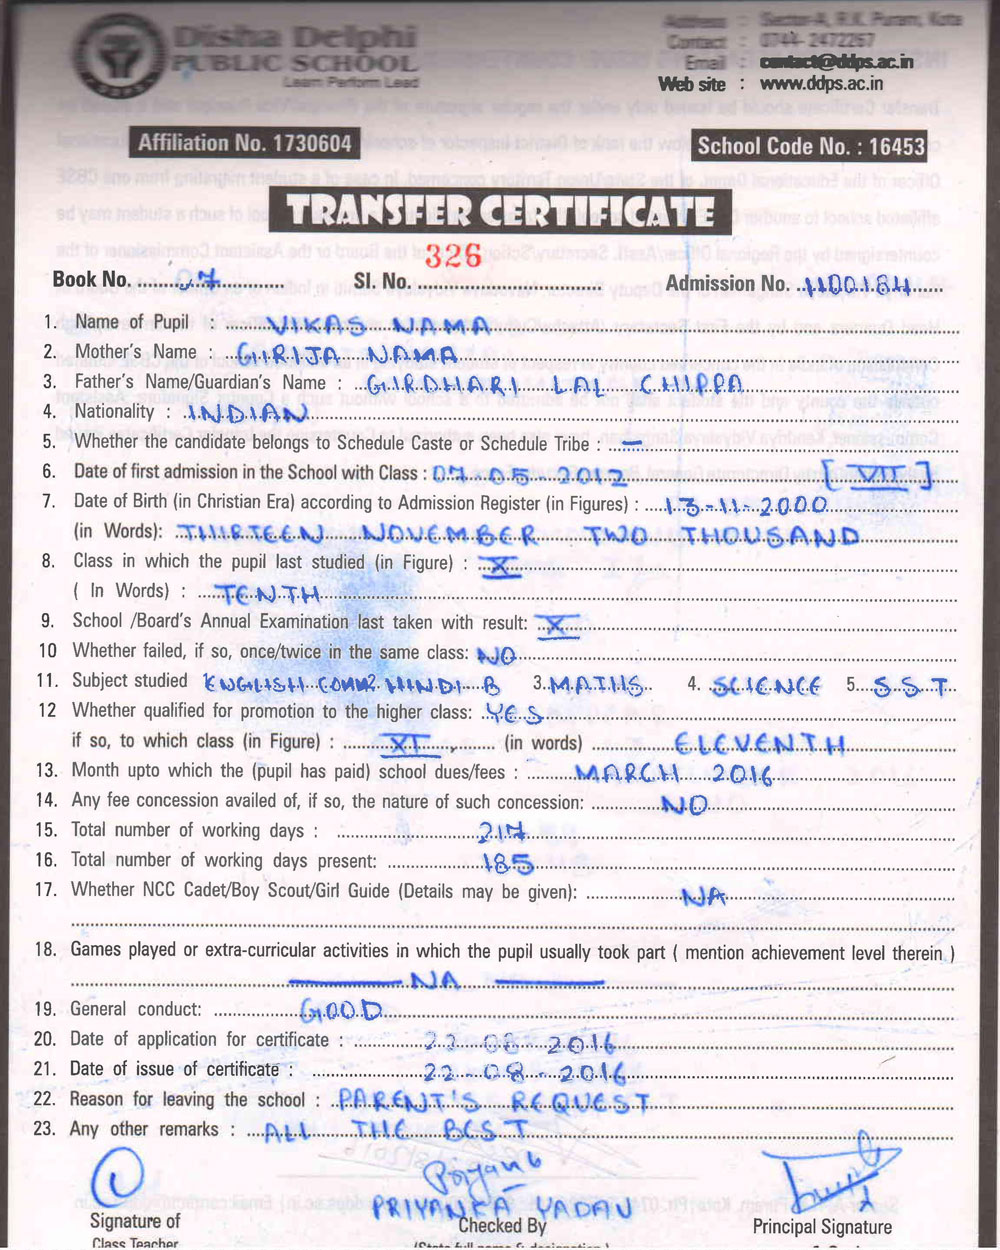 Disha Delphi
PUBLIC SCHOOL
Learn Perform Lead
Address : Sector-A, R.K. Puram, Kota
Contact : 0744-2472267
Email : contact@ddps.ac.in
Web site : www.ddps.ac.in
Affiliation No. 1730604
School Code No. : 16453
TRANSFER CERTIFICATE
Book No. 07 Sl. No. 326 Admission No. 1100184
1. Name of Pupil : VIKAS NAMA
2. Mother's Name : GIRIJA NAMA
3. Father's Name/Guardian's Name : GIRDHARI LAL CHIPPA
4. Nationality : INDIAN
5. Whether the candidate belongs to Schedule Caste or schedule Tribe : —
6. Date of first admission in the School with Class : 07-05-2012 [VII]
7. Date of Birth (in Christian Era) according to Admission Register (in Figures) : 13-11-2000
(in Words): THIRTEEN NOVEMBER TWO THOUSAND
8. Class in which the pupil last studied (in Figure) : X
( In Words) : TENTH
9. School /Board's Annual Examination last taken with result: X
10 Whether failed, if so, once/twice in the same class: NO
11. Subject studied ENGLISH COMM2. HINDI-B 3. MATHS 4. SCIENCE 5. S.S.T
12 Whether qualified for promotion to the higher class: YES
if so, to which class (in Figure) : XI (in words) ELEVENTH
13. Month upto which the (pupil has paid) school dues/fees : MARCH 2016
14. Any fee concession availed of, if so, the nature of such concession: NO
15. Total number of working days : 217
16. Total number of working days present: 185
17. Whether NCC Cadet/Boy Scout/Girl Guide (Details may be given): NA
18. Games played or extra-curricular activities in which the pupil usually took part ( mention achievement level therein )
NA
19. General conduct: GOOD
20. Date of application for certificate : 22-08-2016
21. Date of issue of certificate : 22-08-2016
22. Reason for leaving the school : PARENT'S REQUEST
23. Any other remarks : ALL THE BEST
Priyanka
PRIYANKA YADAV
Signature of Checked By Principal Signature
Class Teacher (State full name & designation)